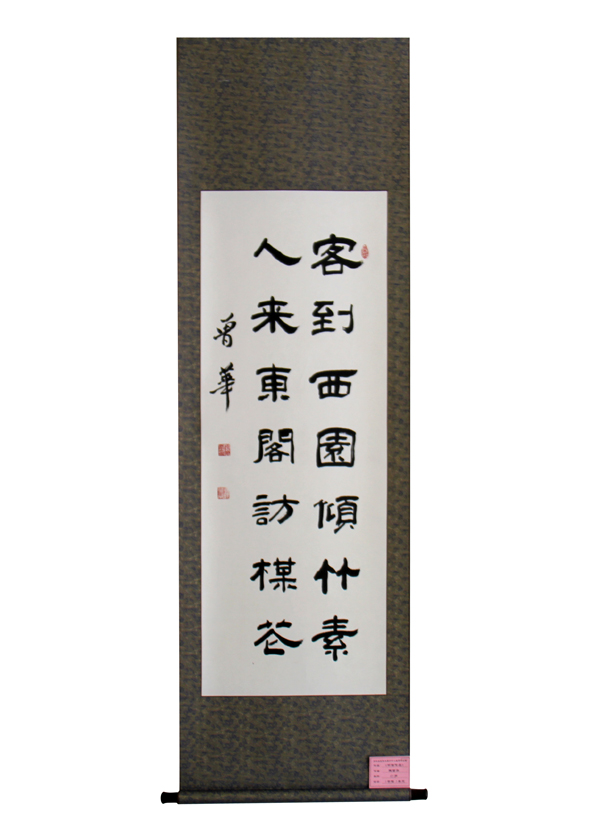 客到西園傾竹素
人来東閣訪楳花
曾華